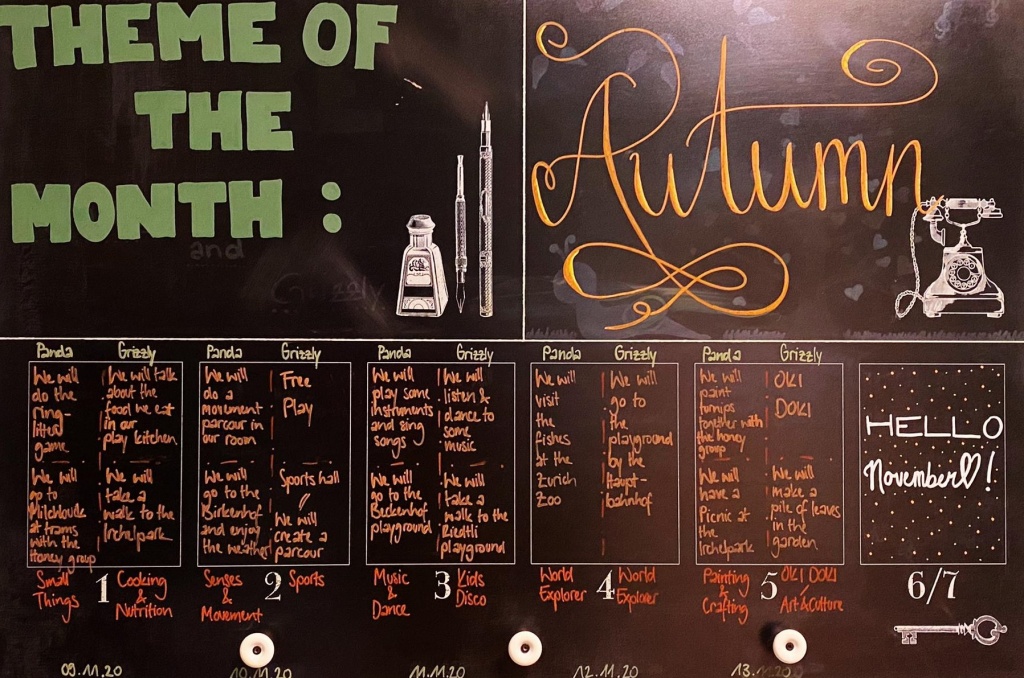 THEME OF
THE
MONTH :
and
Grizzly
Autumn
Panda
Grizzly
We will
do the
ring-
litter
game
We will talk
about the
food we eat
in our
play kitchen.
We will
go to
Milchbude
at trams
with the
Honey group
We will
take a
walk to the
Irchelpark
Small
Things
1
Cooking
&
Nutrition
09.11.20
Panda
Grizzly
We will
do a
movement
parcour in
our room
Free
Play
We will
go to the
Birkenhof
and enjoy
the weather
Sports hall
We will
create a
parcour
Senses
&
Movement
2
Sports
10.11.20
Panda
Grizzly
We will
play some
instruments
and sing
songs
We will
listen &
dance to
some
music
We will
go to the
Beckenhof
playground
We will
take a
walk to the
Riedtli
playground
Music
&
Dance
3
Kids
Disco
11.11.20
Panda
Grizzly
We will
visit
the
fishes
at the
Zurich
Zoo
We will
go to
the
playground
by the
Haupt-
bahnhof
World
Explorer
4
World
Explorer
12.11.20
Panda
Grizzly
We will
paint
turnips
together with
the honey
group
OKI
DOKI
We will
have a
Picnic at
the
Irchelpark
We will
make a
pile of leaves
in the
garden
Painting
&
Crafting
5
OKI DOKI
Art & Culture
13.11.20
HELLO
November♡!
6/7